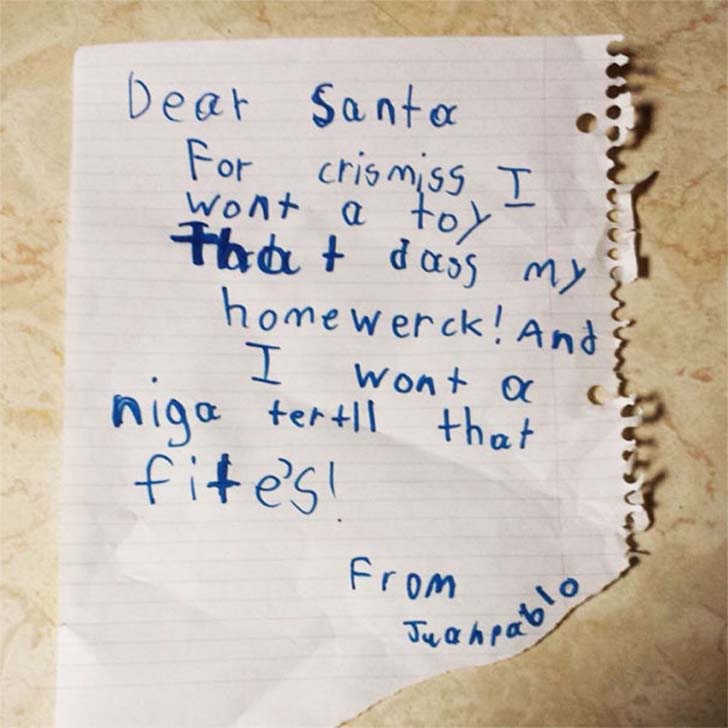 Dear Santa
For crismiss I
wont a toy
That dass my
homewerck! And
I wont a
niga tertll that
fite's!
From
Juahpablo